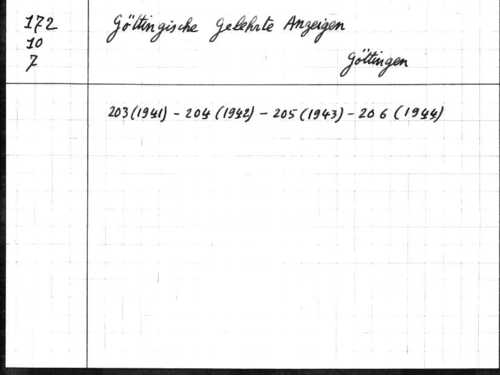 172 Göttingische Gelehrte Anzeigen
10
7 Göttingen
203 (1941) - 204 (1942) - 205 (1943) - 206 (1944)